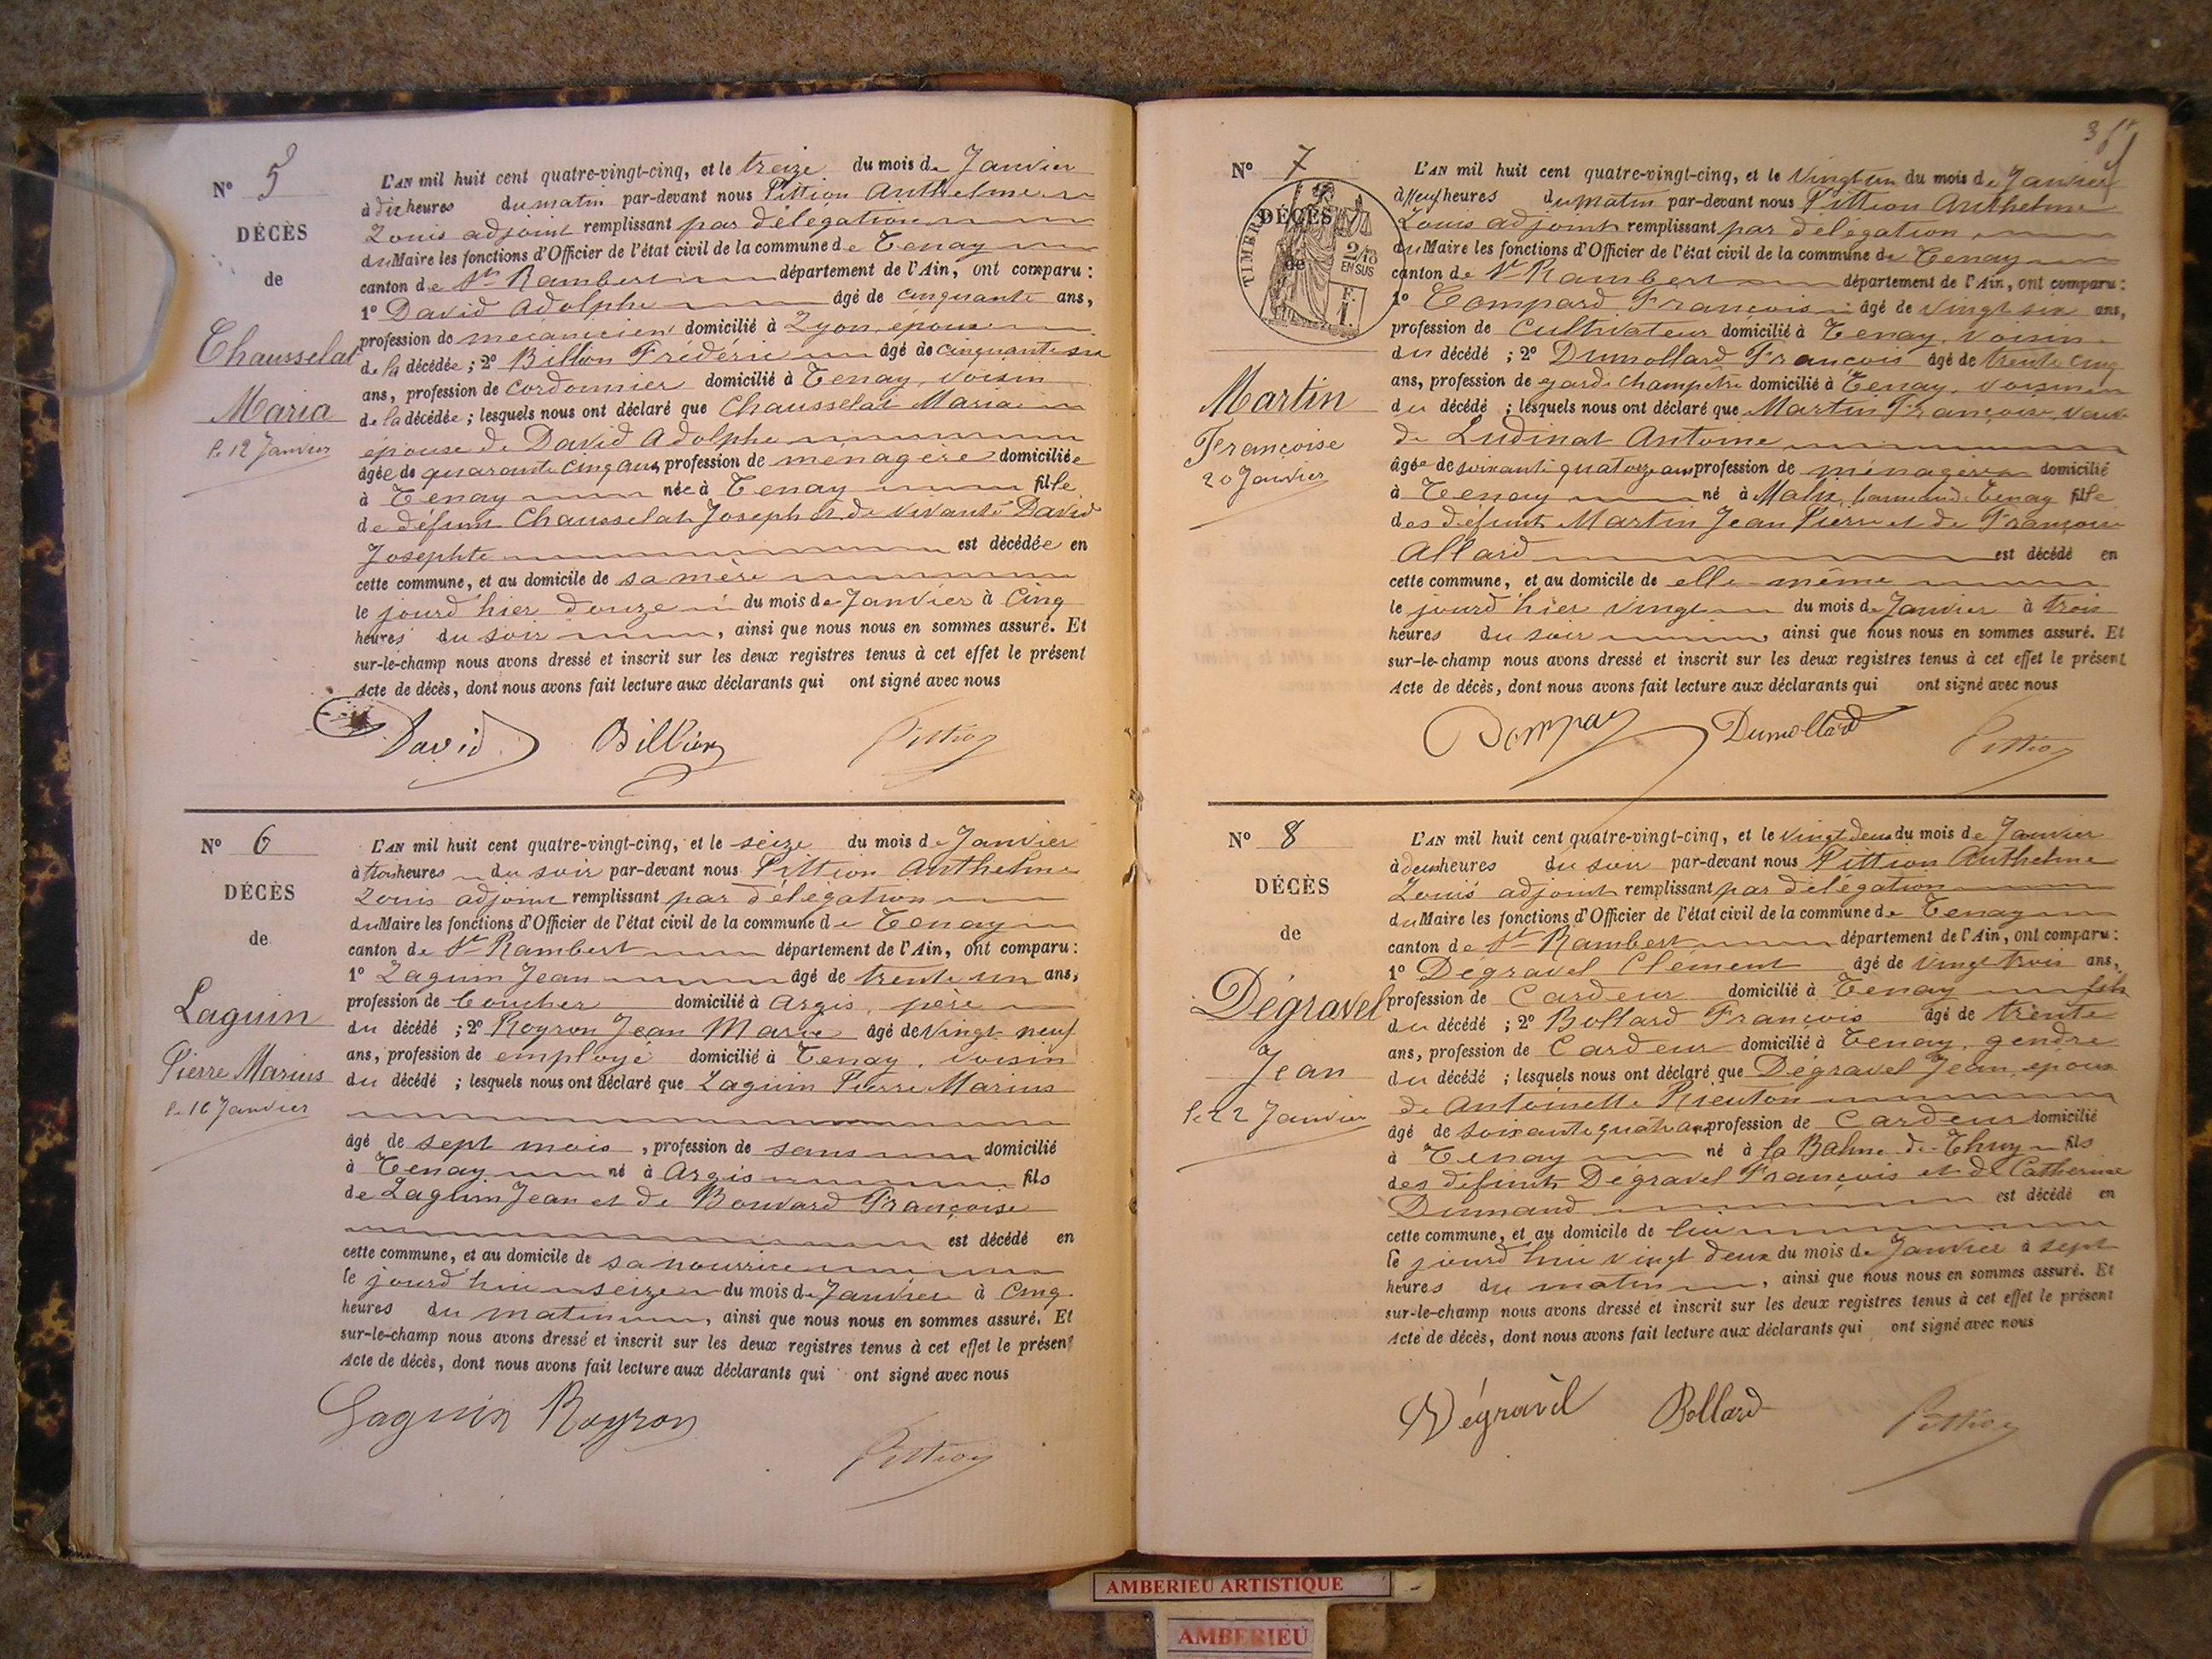 N° 5
DÉCÈS
de
Chausselat
Maria
le 12 Janvier
L'AN mil huit cent quatre-vingt-cinq, et le treize du mois de Janvier
à dix heures du matin par-devant nous Pittion Anthelme
Louis adjoint remplissant par délégation
du Maire les fonctions d'Officier de l'état civil de la commune de Tenay
canton de St Rambert département de l'Ain, ont comparu :
1° David Adolphe âgé de cinquante ans,
profession de mecanicien domicilié à Lyon, époux
de la décédée ; 2° Billion Frédéric âgé de cinquante six
ans, profession de cordonnier domicilié à Tenay, voisin
de la décédée ; lesquels nous ont déclaré que Chausselat Maria
épouse de David Adolphe
âgée de quarante cinq ans, profession de ménagère domiciliée
à Tenay née à Tenay fille
de défunt Chausselat Joseph et de vivante David
Josephte est décédée en
cette commune, et au domicile de sa mère
le jourd'hier douze du mois de Janvier à Cinq
heures du soir, ainsi que nous nous en sommes assuré. Et
sur-le-champ nous avons dressé et inscrit sur les deux registres tenus à cet effet le présent
Acte de décès, dont nous avons fait lecture aux déclarants qui ont signé avec nous
David Billion Pittion
N° 6
DÉCÈS
de
Laguin
Pierre Marius
le 16 Janvier
L'AN mil huit cent quatre-vingt-cinq, et le seize du mois de Janvier
à trois heures du soir par-devant nous Pittion Anthelme
Louis adjoint remplissant par délégation
du Maire les fonctions d'Officier de l'état civil de la commune de Tenay
canton de St Rambert département de l'Ain, ont comparu :
1° Laguin Jean âgé de trente un ans,
profession de domicilié à Argis, père
du décédé ; 2° Royron Jean Marie âgé de vingt neuf
ans, profession de employé domicilié à Tenay, voisin
du décédé ; lesquels nous ont déclaré que Laguin Pierre Marius
âgé de sept mois, profession de sans domicilié
à Tenay né à Argis fils
de Laguin Jean et de Bouvard Françoise
est décédé en
cette commune, et au domicile de sa nourrice
le jourd'hui seize du mois de Janvier à Cinq
heures du matin, ainsi que nous nous en sommes assuré. Et
sur-le-champ nous avons dressé et inscrit sur les deux registres tenus à cet effet le présent
Acte de décès, dont nous avons fait lecture aux déclarants qui ont signé avec nous
Laguin Royron
Pittion
N° 7
DÉCÈS
de
TIMBRE
2/10
EN SUS
Martin
Françoise
20 Janvier
L'AN mil huit cent quatre-vingt-cinq, et le Vingt un du mois de Janvier
à Neuf heures du matin par-devant nous Pittion Anthelme
Louis adjoint remplissant par délégation
du Maire les fonctions d'Officier de l'état civil de la commune de Tenay
canton de St Rambert département de l'Ain, ont comparu :
1° Compard François âgé de vingt six ans,
profession de Cultivateur domicilié à Tenay, voisin
du décédé ; 2° Dumollard François âgé de trente cinq
ans, profession de garde champêtre domicilié à Tenay, voisin
du décédé ; lesquels nous ont déclaré que Martin Françoise, veuve
de Ludinat Antoine
âgée de soixante quatorze ans profession de ménagère domicilié
à Tenay né à Malix, commune de Tenay fille
des défunts Martin Jean Pierre et de Françoise
Allard est décédé en
cette commune, et au domicile de elle-même
le jourd'hier vingt du mois de Janvier à trois
heures du soir, ainsi que nous nous en sommes assuré. Et
sur-le-champ nous avons dressé et inscrit sur les deux registres tenus à cet effet le présent
Acte de décès, dont nous avons fait lecture aux déclarants qui ont signé avec nous
Dumollard Pittion
N° 8
DÉCÈS
de
Dégravel
Jean
le 22 Janvier
L'AN mil huit cent quatre-vingt-cinq, et le vingt deux du mois de Janvier
à deux heures du soir par-devant nous Pittion Anthelme
Louis adjoint remplissant par délégation
du Maire les fonctions d'Officier de l'état civil de la commune de Tenay
canton de St Rambert département de l'Ain, ont comparu :
1° Dégravel Clément âgé de vingt trois ans,
profession de Cardeur domicilié à Tenay fils
du décédé ; 2° Bollard François âgé de trente
ans, profession de Cardeur domicilié à Tenay, gendre
du décédé ; lesquels nous ont déclaré que Dégravel Jean, époux
de Antoinette
âgé de soixante quatre ans profession de Cardeur domicilié
à Tenay né à la Balme de Thuy fils
des défunts Dégravel François et de Catherine
est décédé en
cette commune, et au domicile de lui
le jourd'hui vingt deux du mois de Janvier à sept
heures du matin, ainsi que nous nous en sommes assuré. Et
sur-le-champ nous avons dressé et inscrit sur les deux registres tenus à cet effet le présent
Acte de décès, dont nous avons fait lecture aux déclarants qui ont signé avec nous
Dégravel Bollard Pittion
AMBERIEU ARTISTIQUE
AMBERIEU